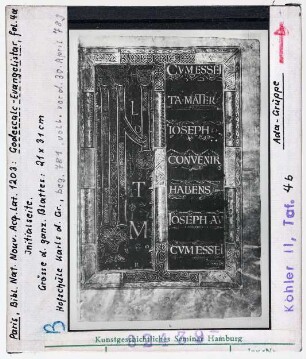 Paris, Bibl. Nat. Nouv. Acq. Lat. 1203: Godescalc-Evangelistar, fol. 4a
Initialseite.
Grösse d. ganz. Blattes: 21 x 31 cm
Hofschule Karls d. Gr., beg. 781 voll. vor d. 30. April 783
B
I
L
T
M
CVM ESSET
TA MATER
IOSEPH
CONVENIR
HABENS
IOSEPH A
CVM ESSET
Ada-Gruppe
Köhler II, Taf. 4b
Kunstgeschichtliches Seminar Hamburg